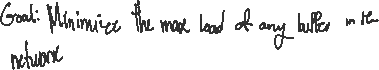 Goal: Minimize the max load of any buffer in the
network